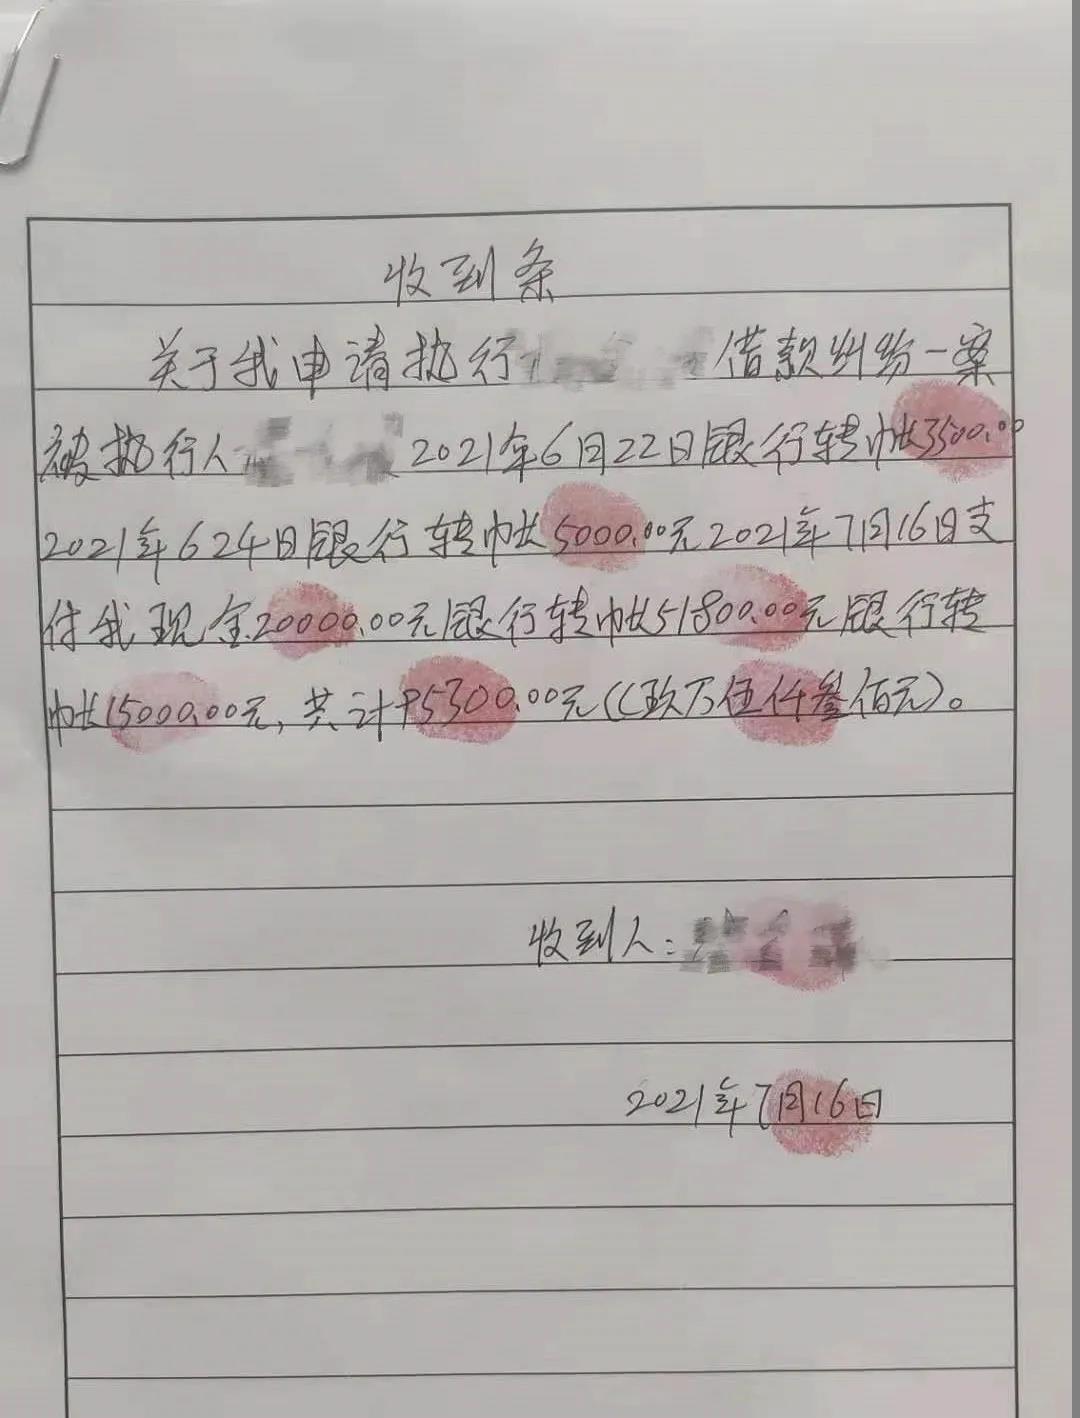 收到条
关于我申请执行借款纠纷一案
被执行人2021年6月22日银行转帐3500.00
2021年624日银行转帐5000.00元2021年7月16日支
付我现金20000.00元银行转帐51800.00元银行转
帐15000.00元,共计95300.00元((玖万伍仟叁佰元)。
收到人:
2021年7月16日